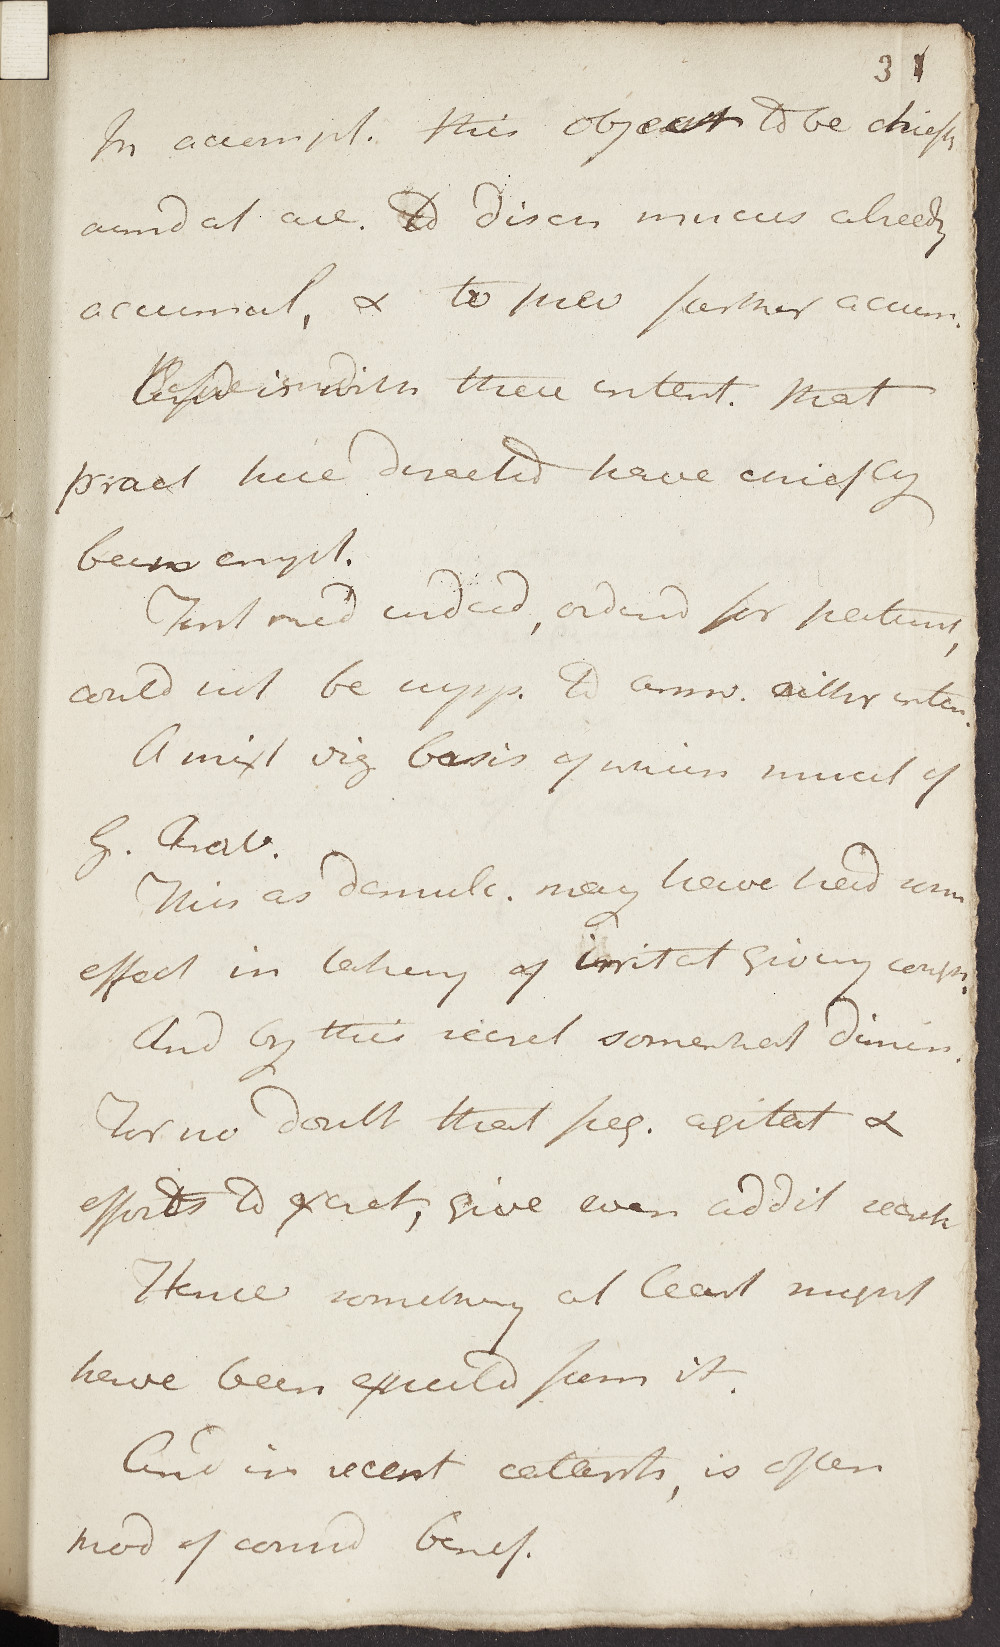 31
In accompl. this object to be chiefly
aimd at are. to discu mucus already
accumul, & to prev farther accum.
is with these intent. that
pract here directed have chiefly
been empl.
First med indeed, orderd for patient,
could not be supp. to answ. either inten.
A mixt vig basis of which mucil of
G. Arab.
This as demulc. may have had som
effect in taking of irritat giving cough.
And by this secret somewhat dimin.
For no doubt that freq. agitat &
efforts to excret, give even addit secret
Hence something at least might
have been expected from it.
And in recent catarrh, is often
prod of consid benef.